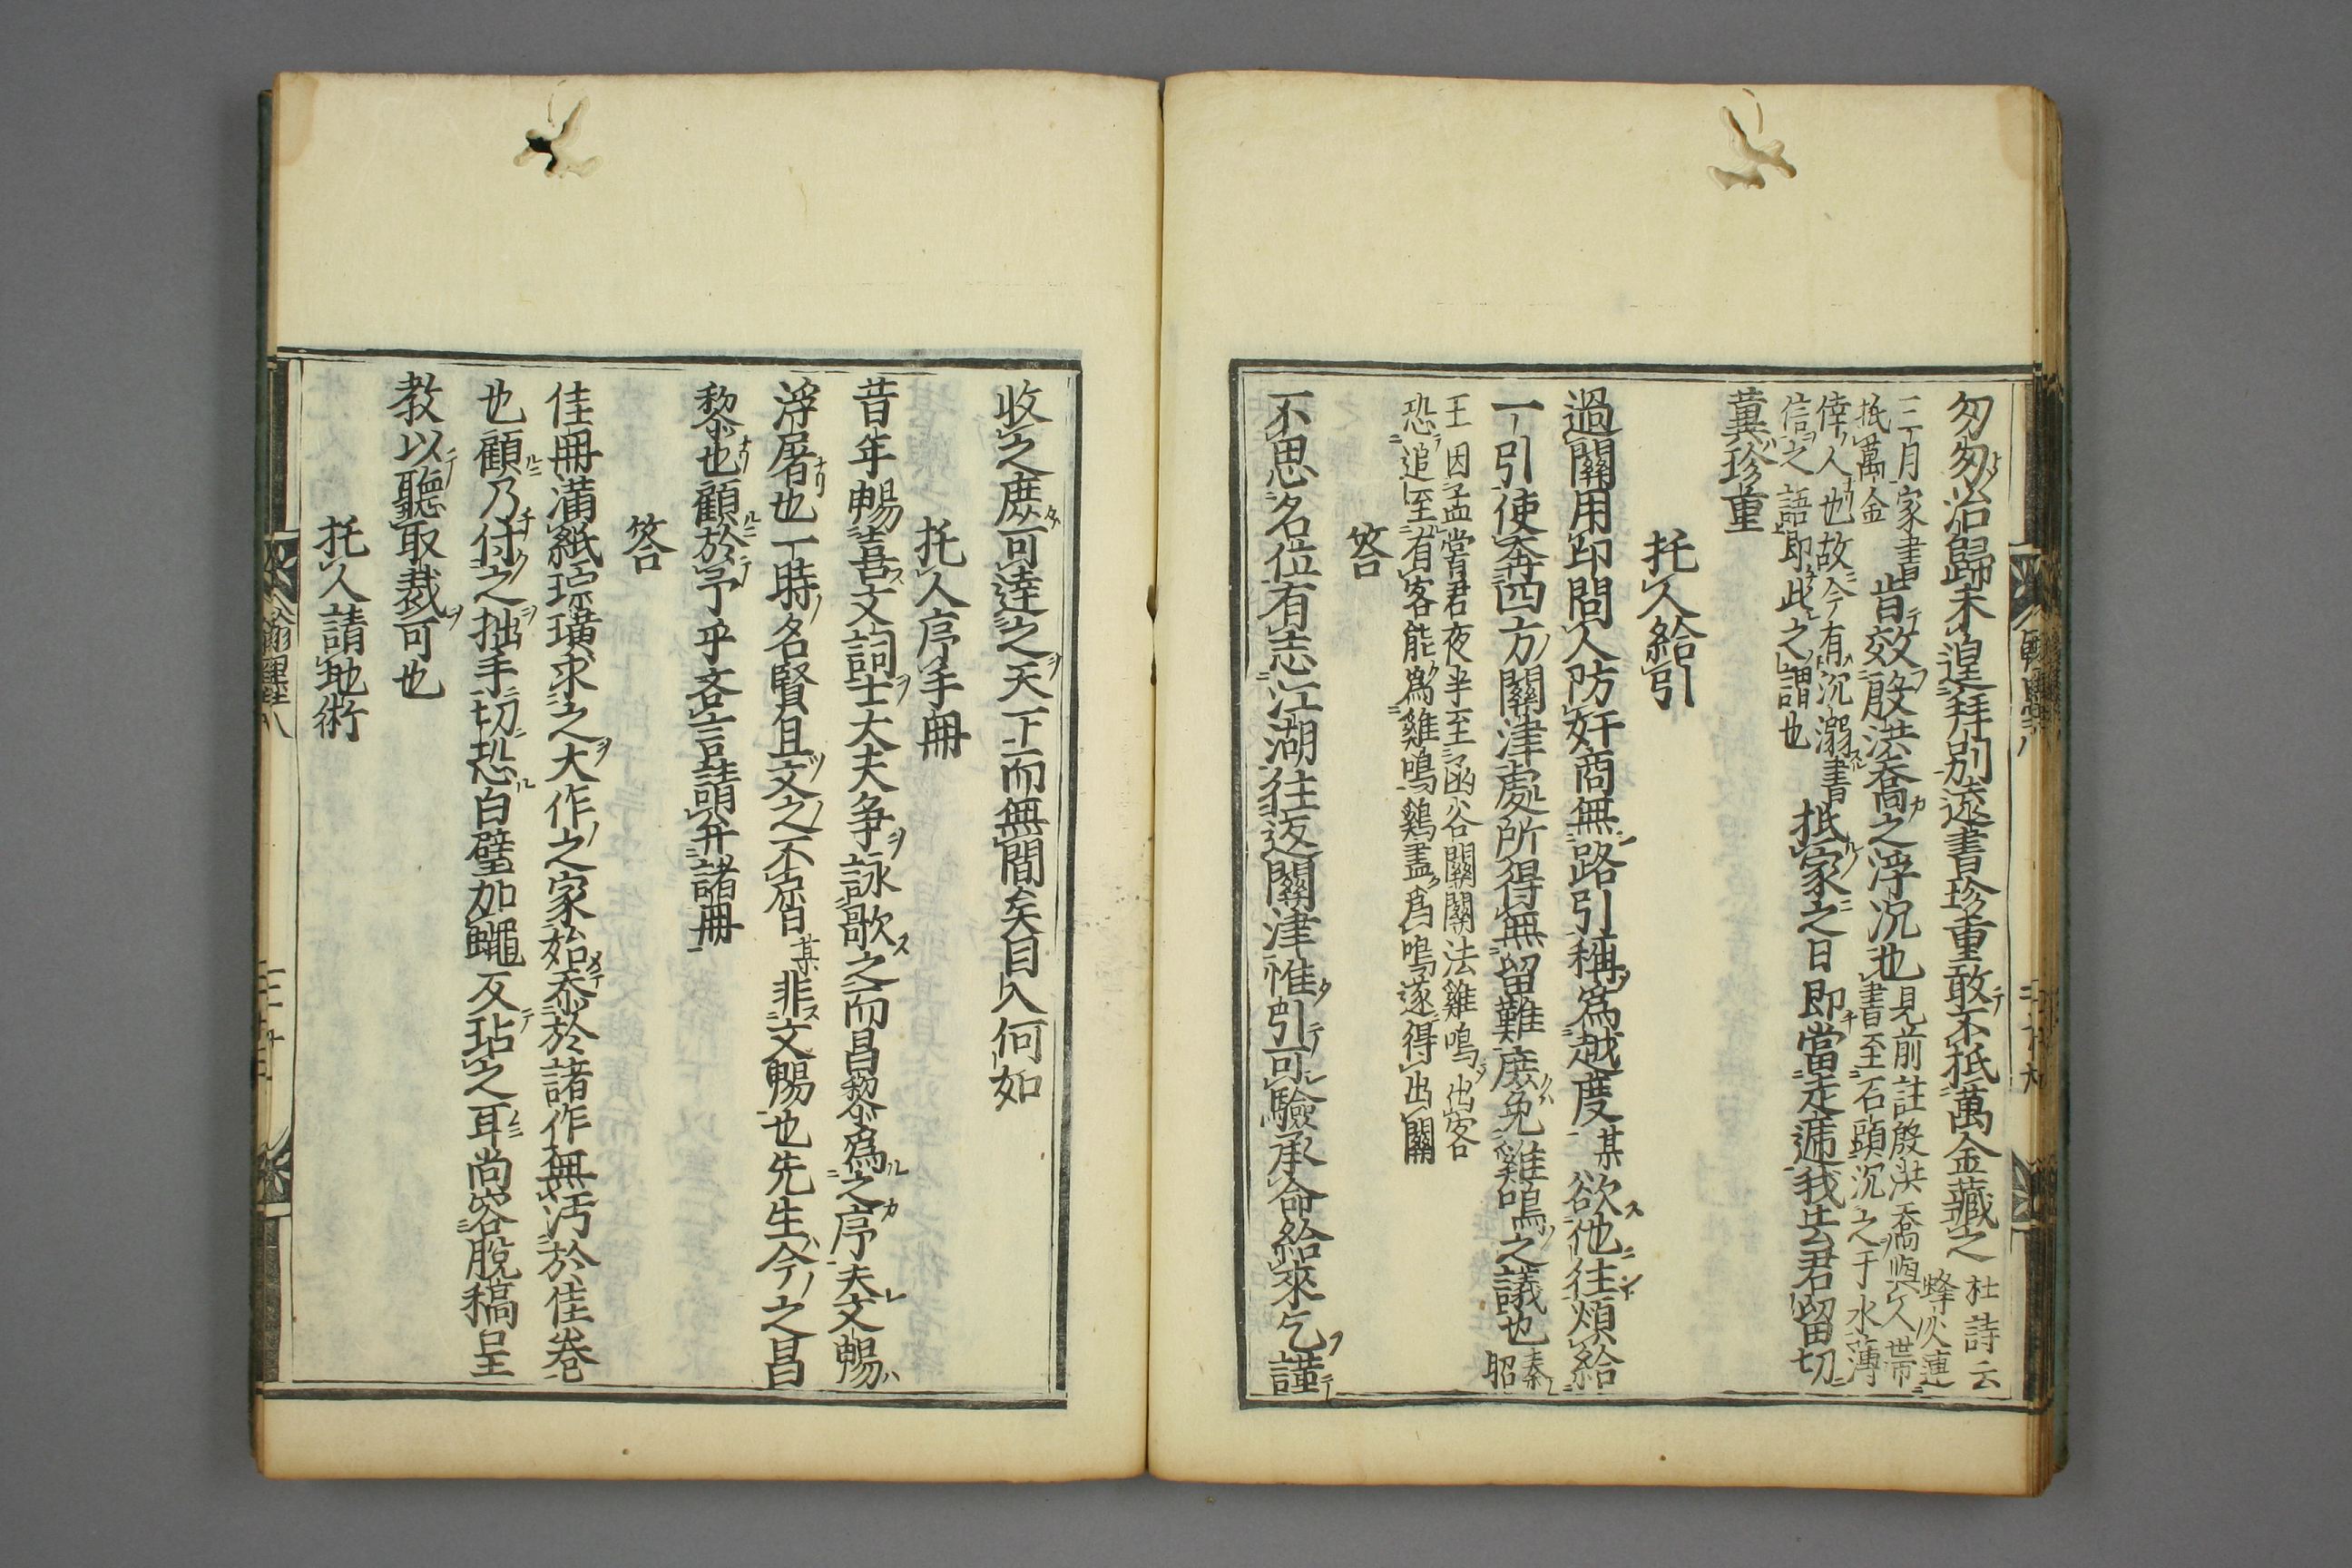 匆匆治歸未遑拜别遠書珍重敢不抵萬金藏之 杜詩云烽火連
三月家書抵萬金 皆效殷洪喬之浮沉也 見前註殷洪喬嘗與人帶書至石頭沉之于水薄
倖人也故今有沉溺書信之語即此之謂也 抵家之日即當走遞我去君留切
冀珍重
托人給引
過關用印問人防奸商無路引稱爲越度某欲他往煩給
一引使奔四方關津處所得無留難庶免雞鳴之議也 秦昭
王因孟嘗君夜半至函谷關關法雞鳴出客
恐追至有客能爲雞鳴鷄盡爲鳴遂得出關
答
不思名位有志江湖往返關津惟引可驗承命給來乞謹
收之庶可達之天下而無間矣目入何如
托人序手冊
昔年暢喜文詞士大夫争詠歌之而昌黎爲之序夫文暢
浮屠也一時名賢且文之不啻某非文暢也先生今之昌
黎也顧於予乎吝言請弁諸冊
答
佳冊滿紙琮璜求之大作之家始忝於諸作無汚於佳卷
也顧乃付之拙手切恐白璧加蠅反玷之耳尚容脫稿呈
教以聽取裁可也
托人請地術